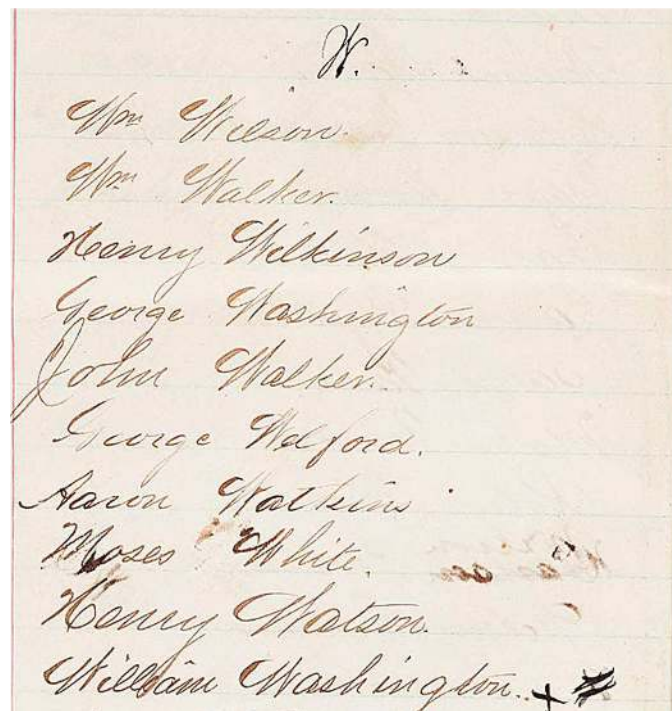 W.
Wm Wilson.
Wm Walker.
Henry Wilkinson
George Washington
John Walker.
George Welford.
Aaron Watkins
Moses White.
Henry Watson.
William Washington. +